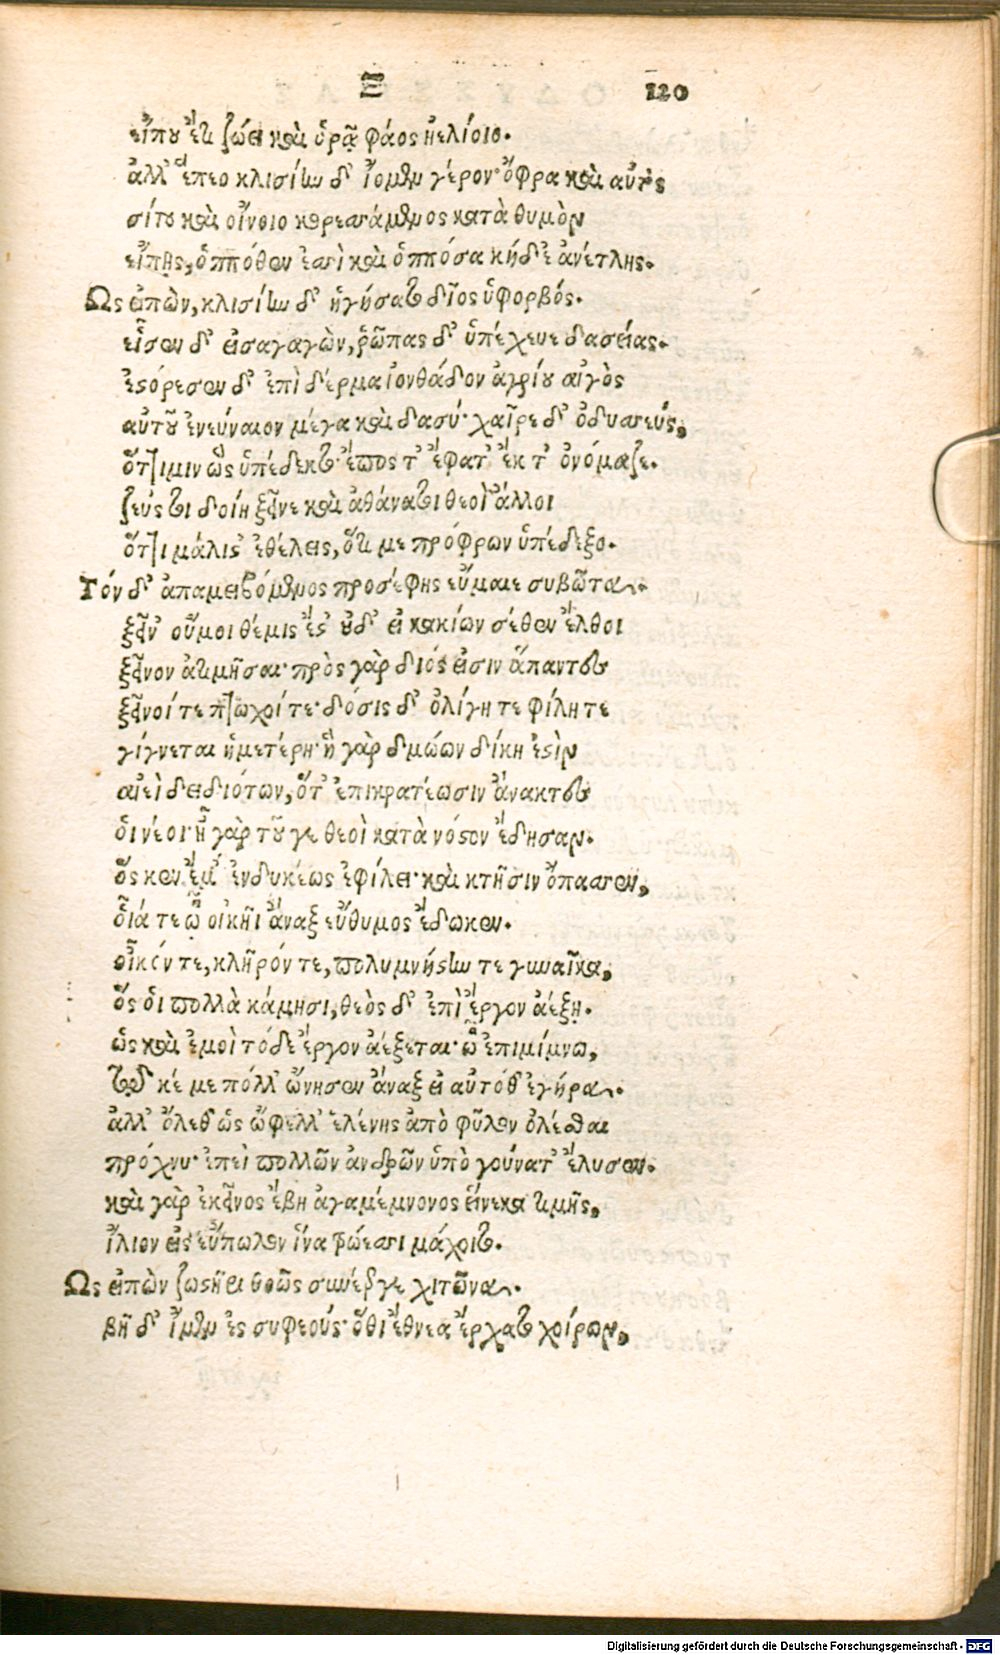 Ξ 120
εἴπου ἔτι ζώει καὶ ὁρᾷ φάος ἠελίοιο.
ἀλλ' ἕπεο κλισίην δ' ἴομεν γέρον· ὄφρα καὶ αὐτὸς
σίτου καὶ οἴνοιο κορεσσάμενος κατὰ θυμὸν
εἴπῃς, ὁππόθεν ἐσσὶ καὶ ὁππόσα κήδε' ἀνέτλης.
Ως εἰπὼν, κλισίην δ' ἡγήσατο δῖος ὑφορβός.
εἷσεν δ' εἰσαγαγὼν, ῥῶπας δ' ὑπέχευε δασείας.
ἐστόρεσεν δ' ἐπὶ δέρμα ἰονθάδον ἀγρίου αἰγὸς
αὐτοῦ ἐνεύναιον μέγα καὶ δασύ· χαῖρε δ' ὀδυσσεύς,
ὅττι μιν ὣς ὑπέδεκτο· ἔπος τ' ἔφατ' ἔκ τ' ὀνόμαζε.
ζεύς τοι δοίη ξεῖνε καὶ ἀθάνατοι θεοὶ ἄλλοι
ὅττι μάλιστ' ἐθέλεις, ὅτι με πρόφρων ὑπέδεξο.
Τόν δ' ἀπαμειβόμενος προσέφης εὔμαιε συβῶτα.
ξεῖν' οὔ μοι θέμις ἔστ' οὐδ' εἰ κακίων σέθεν ἔλθοι
ξεῖνον ἀτιμῆσαι· πρὸς γὰρ διός εἰσιν ἅπαντες
ξεῖνοί τε πτωχοί τε· δόσις δ' ὀλίγη τε φίλη τε
γίγνεται ἡμετέρη· ἡ γὰρ δμώων δίκη ἐστὶν
αἰεὶ δειδιότων, ὅτ' ἐπικρατέωσιν ἄνακτες
οἱ νέοι· ἦ γὰρ τοῦ γε θεοὶ κατὰ νόστον ἔδησαν.
ὅς κεν ἔμ' ἐνδυκέως ἐφίλει· καὶ κτῆσιν ὄπασσεν,
οἷά τε ᾧ οἰκῆι ἄναξ εὔθυμος ἔδωκεν.
οἶκόν τε, κλῆρόν τε, πολυμνήστην τε γυναῖκα,
ὅς οἱ πολλὰ κάμησι, θεὸς δ' ἐπὶ ἔργον ἀέξῃ.
ὡς καὶ ἐμοὶ τόδε ἔργον ἀέξεται· ᾧ ἐπιμίμνω,
τῷ κέ με πόλλ' ὤνησεν ἄναξ εἰ αὐτόθ' ἐγήρα.
ἀλλ' ὄλεθ' ὡς ὤφελλ' ἑλένης ἀπὸ φῦλον ὀλέσθαι
πρόχνυ· ἐπεὶ πολλῶν ἀνδρῶν ὑπὸ γούνατ' ἔλυσεν.
καὶ γὰρ ἐκεῖνος ἔβη ἀγαμέμνονος εἵνεκα τιμῆς,
ἴλιον εἰς εὔπωλον ἵνα τρώεσσι μάχοιτο.
Ως εἰπὼν ζωστῆρι θοῶς συνέεργε χιτῶνα.
βῆ δ' ἴμεν ἐς συφεούς· ὅθι ἔθνεα ἔρχατο χοίρων,
Digitalisierung gefördert durch die Deutsche Forschungsgemeinschaft - DFG